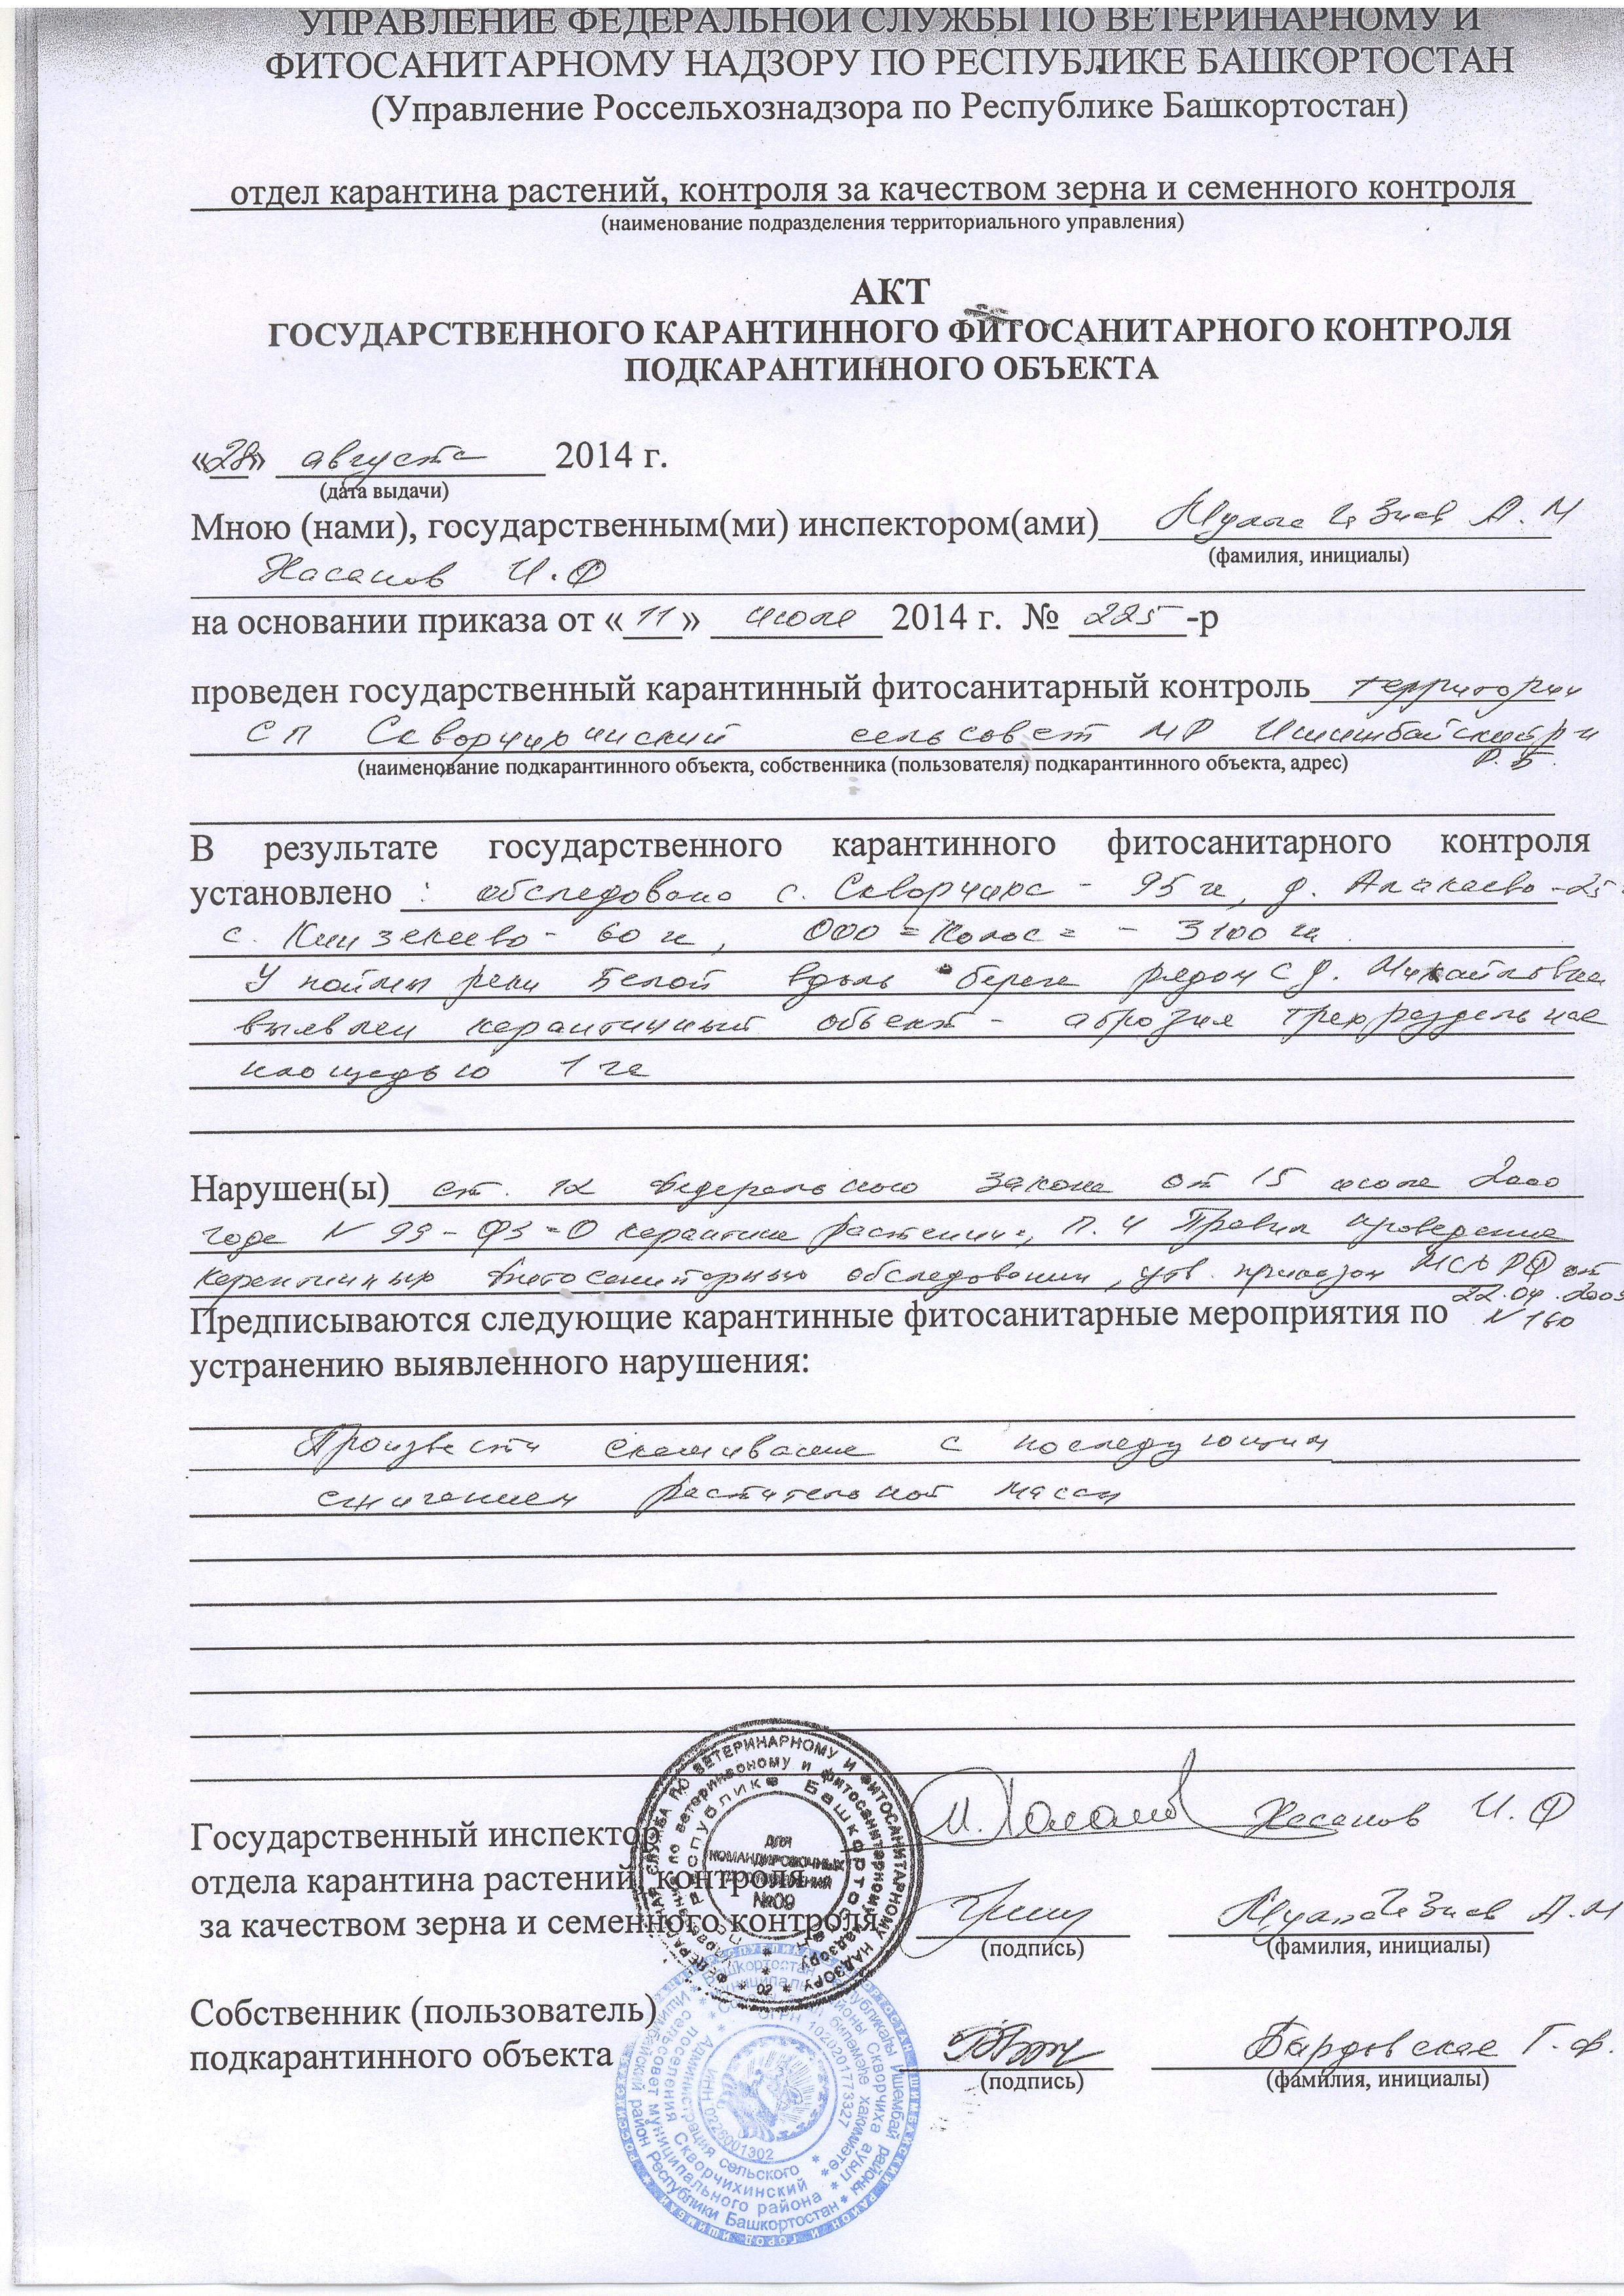 УПРАВЛЕНИЕ ФЕДЕРАЛЬНОЙ СЛУЖБЫ ПО ВЕТЕРИНАРНОМУ И
ФИТОСАНИТАРНОМУ НАДЗОРУ ПО РЕСПУБЛИКЕ БАШКОРТОСТАН
(Управление Россельхознадзора по Республике Башкортостан)
отдел карантина растений, контроля за качеством зерна и семенного контроля
(наименование подразделения территориального управления)
АКТ
ГОСУДАРСТВЕННОГО КАРАНТИННОГО ФИТОСАНИТАРНОГО КОНТРОЛЯ
ПОДКАРАНТИННОГО ОБЪЕКТА
«28» августа 2014 г.
(дата выдачи)
Мною (нами), государственным(ми) инспектором(ами) А.М
(фамилия, инициалы)
Хасанов И.Ф
на основании приказа от «11» июля 2014 г. № 225-р
проведен государственный карантинный фитосанитарный контроль территории
СП Скворчихинский сельсовет МР Ишимбайский р-н
Р.Б.
(наименование подкарантинного объекта, собственника (пользователя) подкарантинного объекта, адрес)
В результате государственного карантинного фитосанитарного контроля
установлено : обследовано с. Скворчиха - 95 га, д. Алакаево - 25
с. Кинзекеево - 60 га, ООО "Колос" - 3100 га
У поймы реки Белой вдоль берега рядом с д. Михайловка
выявлен карантинный объект - амброзия трехраздельная
площадью 1 га
Нарушен(ы) ст. 12 Федерального закона от 15 июля 2000
года N 99-ФЗ "О карантине растений", П. 4 Правил проведения
карантинных фитосанитарных обследований, утв. приказом МСХ РФ от
22.04.2009
N 160
Предписываются следующие карантинные фитосанитарные мероприятия по
устранению выявленного нарушения:
Произвести скашивание с последующим
сжиганием растительной массы
Государственный инспектор Хасанов И.Ф
отдела карантина растений, контроля
за качеством зерна и семенного контроля А.М
(подпись) (фамилия, инициалы)
Собственник (пользователь)
подкарантинного объекта Бардовская Г.Ф.
(подпись) (фамилия, инициалы)
ДЛЯ
КОМАНДИРОВОЧНЫХ
№09
ОГРН 1020201773327
ИНН 0226001302
Администрация сельского
поселения Скворчихинский
сельсовет муниципального района
Ишимбайский район Республики Башкортостан